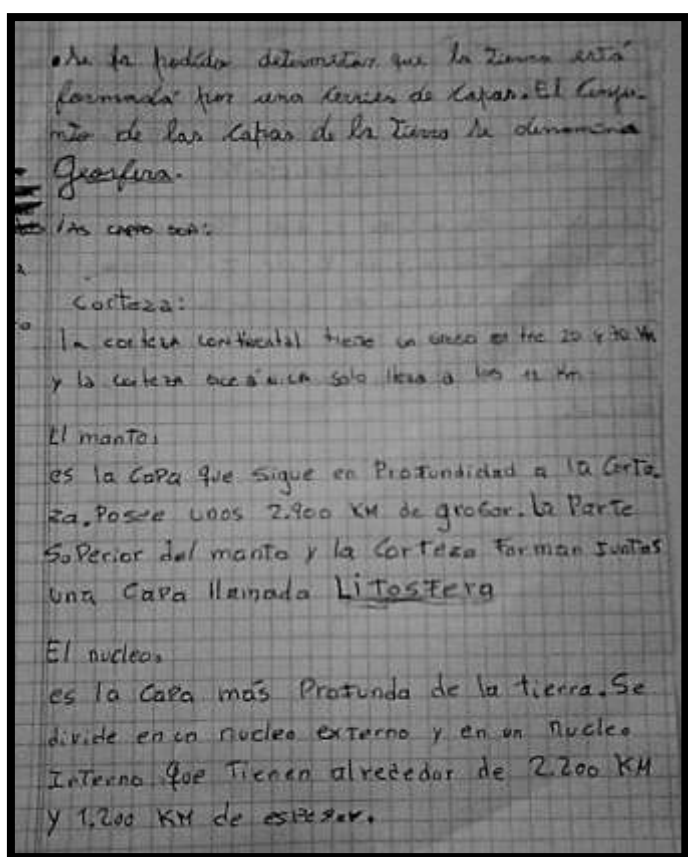 • Se ha podido determinar que la Tierra está
formada por una serries de capas. El Conjun-
mto de las capas de la Tierra se denomina
Geosfera.
las capas son:
Corteza:
la corteza continental tiene un entre 20 y 70 Km
y la corteza oceánica solo llega a los 12 Km
El manto:
es la CaPa que sigue en Profundidad a la Corte-
za. Posee unos 2.900 KM de grosor. la Parte
SuPerior del manto y la Corteza Forman Juntas
una CaPa llamada Litosfera
El nucleo:
es la CaPa más Profunda de la tierra. Se
divide en un nucleo externo y en un nucleo
Interno que Tienen alrededor de 2.200 KM
y 1.200 KM de espesor.